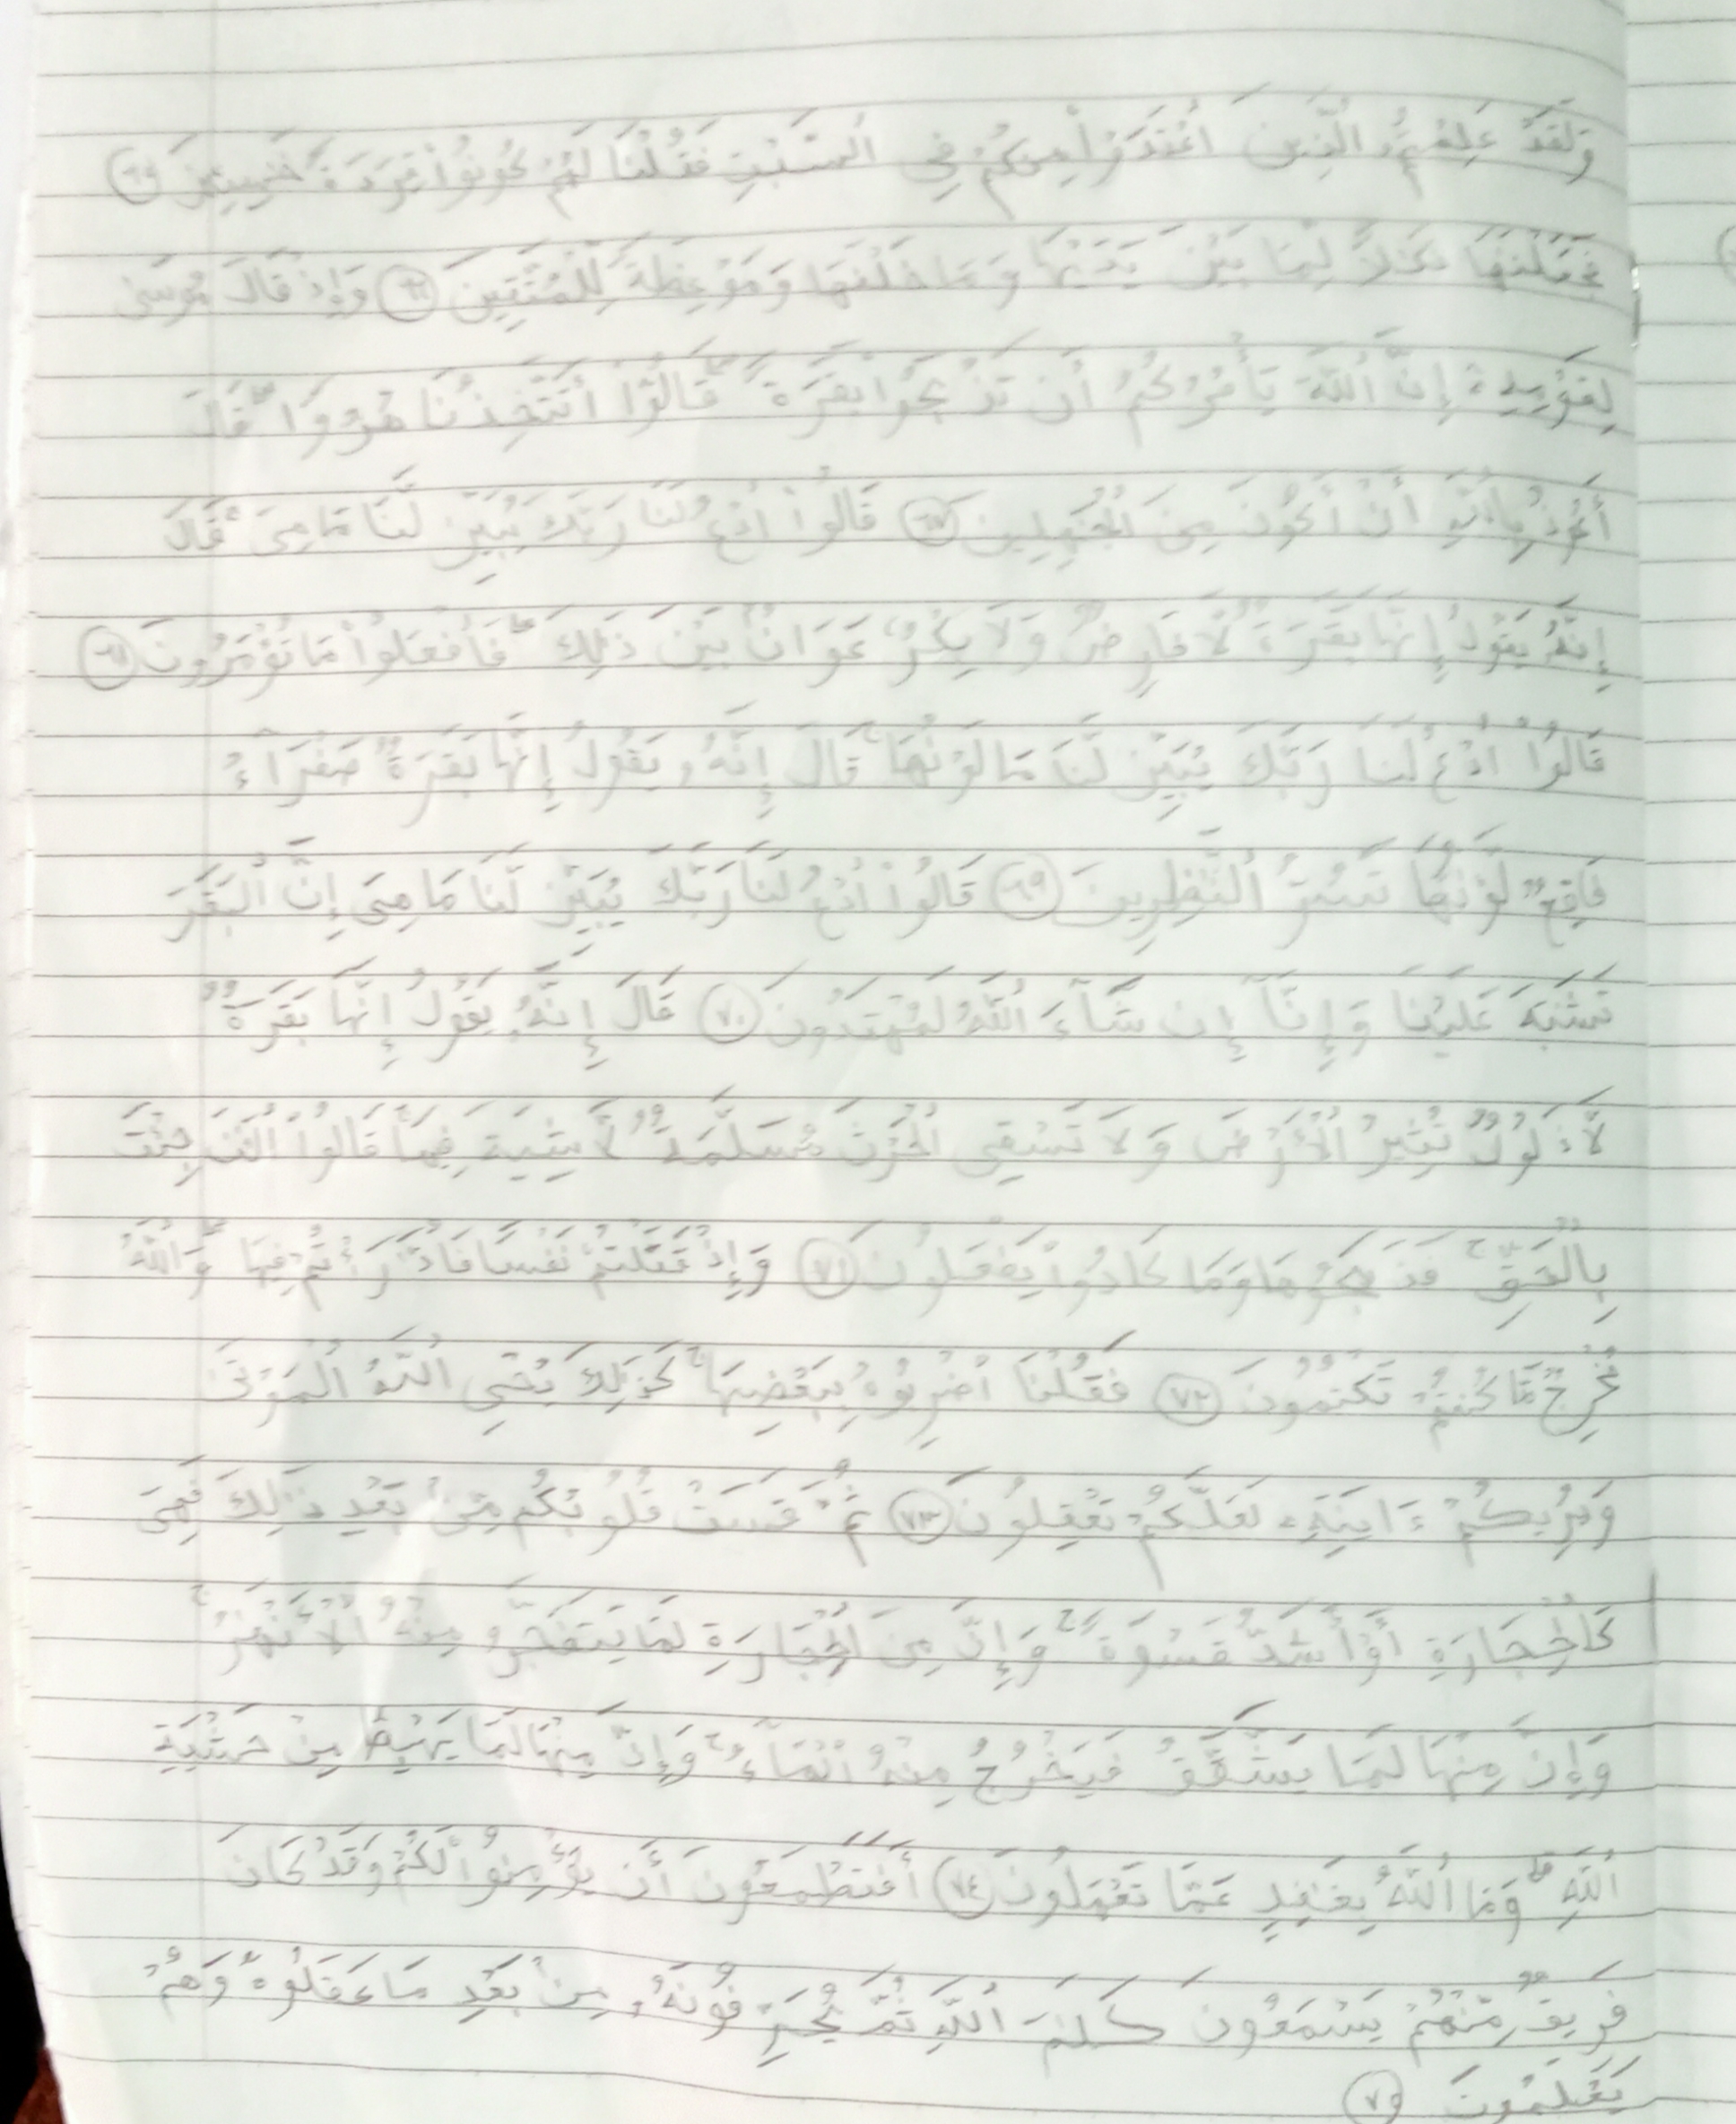 وَلَقَدْ عَلِمْتُمُ الَّذِينَ اعْتَدَوْا مِنكُمْ فِي السَّبْتِ فَقُلْنَا لَهُمْ كُونُوا قِرَدَةً خَٰسِئِينَ ٦٥
فَجَعَلْنَٰهَا نَكَٰلًا لِّمَا بَيْنَ يَدَيْهَا وَمَا خَلْفَهَا وَمَوْعِظَةً لِّلْمُتَّقِينَ ٦٦ وَإِذْ قَالَ مُوسَىٰ
لِقَوْمِهِ إِنَّ ٱللَّهَ يَأْمُرُكُمْ أَن تَذْبَحُوا بَقَرَةً ۖ قَالُوٓا أَتَتَّخِذُنَا هُزُوًا ۖ قَالَ
أَعُوذُ بِٱللَّهِ أَنْ أَكُونَ مِنَ ٱلْجَٰهِلِينَ ٦٧ قَالُوا ٱدْعُ لَنَا رَبَّكَ يُبَيِّن لَّنَا مَا هِىَ ۚ قَالَ
إِنَّهُۥ يَقُولُ إِنَّهَا بَقَرَةٌ لَّا فَارِضٌ وَلَا بِكْرٌ عَوَانٌۢ بَيْنَ ذَٰلِكَ ۖ فَٱفْعَلُوا مَا تُؤْمَرُونَ ٦٨
قَالُوا ٱدْعُ لَنَا رَبَّكَ يُبَيِّن لَّنَا مَا لَوْنُهَا ۚ قَالَ إِنَّهُۥ يَقُولُ إِنَّهَا بَقَرَةٌ صَفْرَآءُ
فَاقِعٌ لَّوْنُهَا تَسُرُّ ٱلنَّٰظِرِينَ ٦٩ قَالُوا ٱدْعُ لَنَا رَبَّكَ يُبَيِّن لَّنَا مَا هِىَ إِنَّ ٱلْبَقَرَ
تَشَٰبَهَ عَلَيْنَا وَإِنَّآ إِن شَآءَ ٱللَّهُ لَمُهْتَدُونَ ٧٠ قَالَ إِنَّهُۥ يَقُولُ إِنَّهَا بَقَرَةٌ
لَّا ذَلُولٌ تُثِيرُ ٱلْأَرْضَ وَلَا تَسْقِى ٱلْحَرْثَ مُسَلَّمَةٌ لَّا شِيَةَ فِيهَا ۚ قَالُوا ٱلْـَٰٔنَ جِئْتَ
بِٱلْحَقِّ ۚ فَذَبَحُوهَا وَمَا كَادُوا يَفْعَلُونَ ٧١ وَإِذْ قَتَلْتُمْ نَفْسًا فَٱدَّٰرَْٰٔتُمْ فِيهَا ۖ وَٱللَّهُ
مُخْرِجٌ مَّا كُنتُمْ تَكْتُمُونَ ٧٢ فَقُلْنَا ٱضْرِبُوهُ بِبَعْضِهَا ۚ كَذَٰلِكَ يُحْىِ ٱللَّهُ ٱلْمَوْتَىٰ
وَيُرِيكُمْ ءَايَٰتِهِۦ لَعَلَّكُمْ تَعْقِلُونَ ٧٣ ثُمَّ قَسَتْ قُلُوبُكُم مِّنۢ بَعْدِ ذَٰلِكَ فَهِىَ
كَٱلْحِجَارَةِ أَوْ أَشَدُّ قَسْوَةً ۚ وَإِنَّ مِنَ ٱلْحِجَارَةِ لَمَا يَتَفَجَّرُ مِنْهُ ٱلْأَنْهَٰرُ ۚ
وَإِنَّ مِنْهَا لَمَا يَشَّقَّقُ فَيَخْرُجُ مِنْهُ ٱلْمَآءُ ۚ وَإِنَّ مِنْهَا لَمَا يَهْبِطُ مِنْ خَشْيَةِ
ٱللَّهِ ۗ وَمَا ٱللَّهُ بِغَٰفِلٍ عَمَّا تَعْمَلُونَ ٧٤ أَفَتَطْمَعُونَ أَن يُؤْمِنُوا لَكُمْ وَقَدْ كَانَ
فَرِيقٌ مِّنْهُمْ يَسْمَعُونَ كَلَٰمَ ٱللَّهِ ثُمَّ يُحَرِّفُونَهُۥ مِنۢ بَعْدِ مَا عَقَلُوهُ وَهُمْ
يَعْلَمُونَ ٧٥